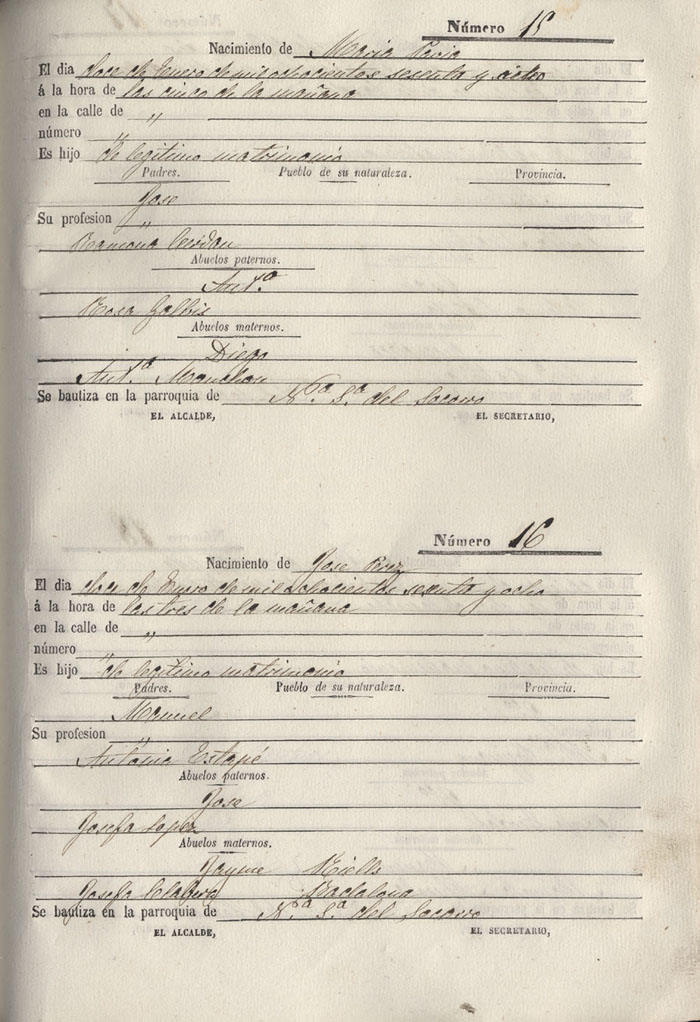 Número 15
Nacimiento de Maria
El dia doce de Enero de mil ochocientos sesenta y ocho
á la hora de las cinco de la mañana
en la calle de "
número "
Es hijo de legitimo matrimonio
Padres. Pueblo de su naturaleza. Provincia.
Jose
Su profesion "
Ramona
Abuelos paternos.
Ant.º
Rosa Galbis
Abuelos maternos.
Diego
Ant.ª Manchon
Se bautiza en la parroquia de N.ª S.ª del Socorro
EL ALCALDE, EL SECRETARIO,
Número 16
Nacimiento de Jose
El dia doce de Enero de mil ochocientos sesenta y ocho
á la hora de las tres de la mañana
en la calle de "
número "
Es hijo de legitimo matrimonio
Padres. Pueblo de su naturaleza. Provincia.
Manuel
Su profesion "
Antonia Estapé
Abuelos paternos.
Jose
Josefa Lopez
Abuelos maternos.
Jayme Riells
Josefa Badalona
Se bautiza en la parroquia de N.ª S.ª del Socorro
EL ALCALDE, EL SECRETARIO,